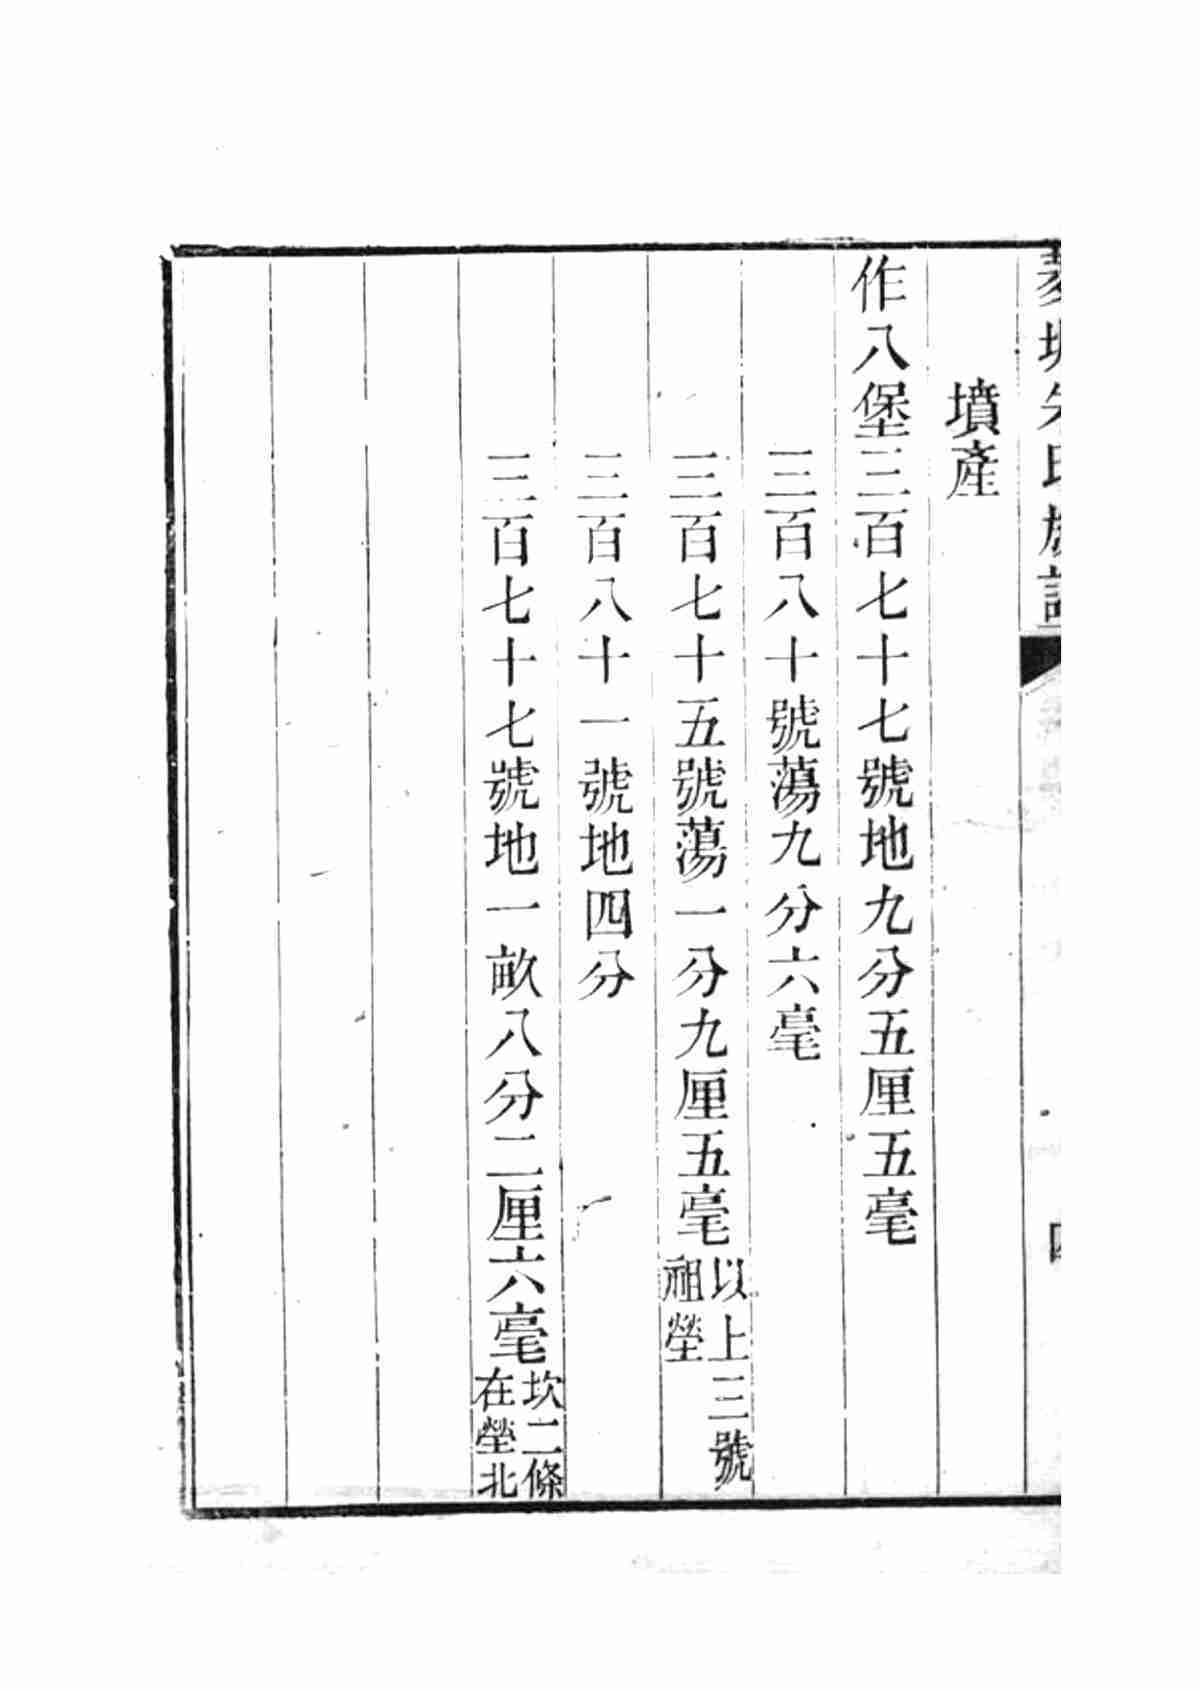 朱氏族譜
四
墳產
作八堡三百七十七號地九分五厘五毫
三百八十號蕩九分六毫
三百七十五號蕩一分九厘五毫以上三號祖塋
三百八十一號地四分
三百七十七號地一畝八分二厘六毫坎二條在塋北